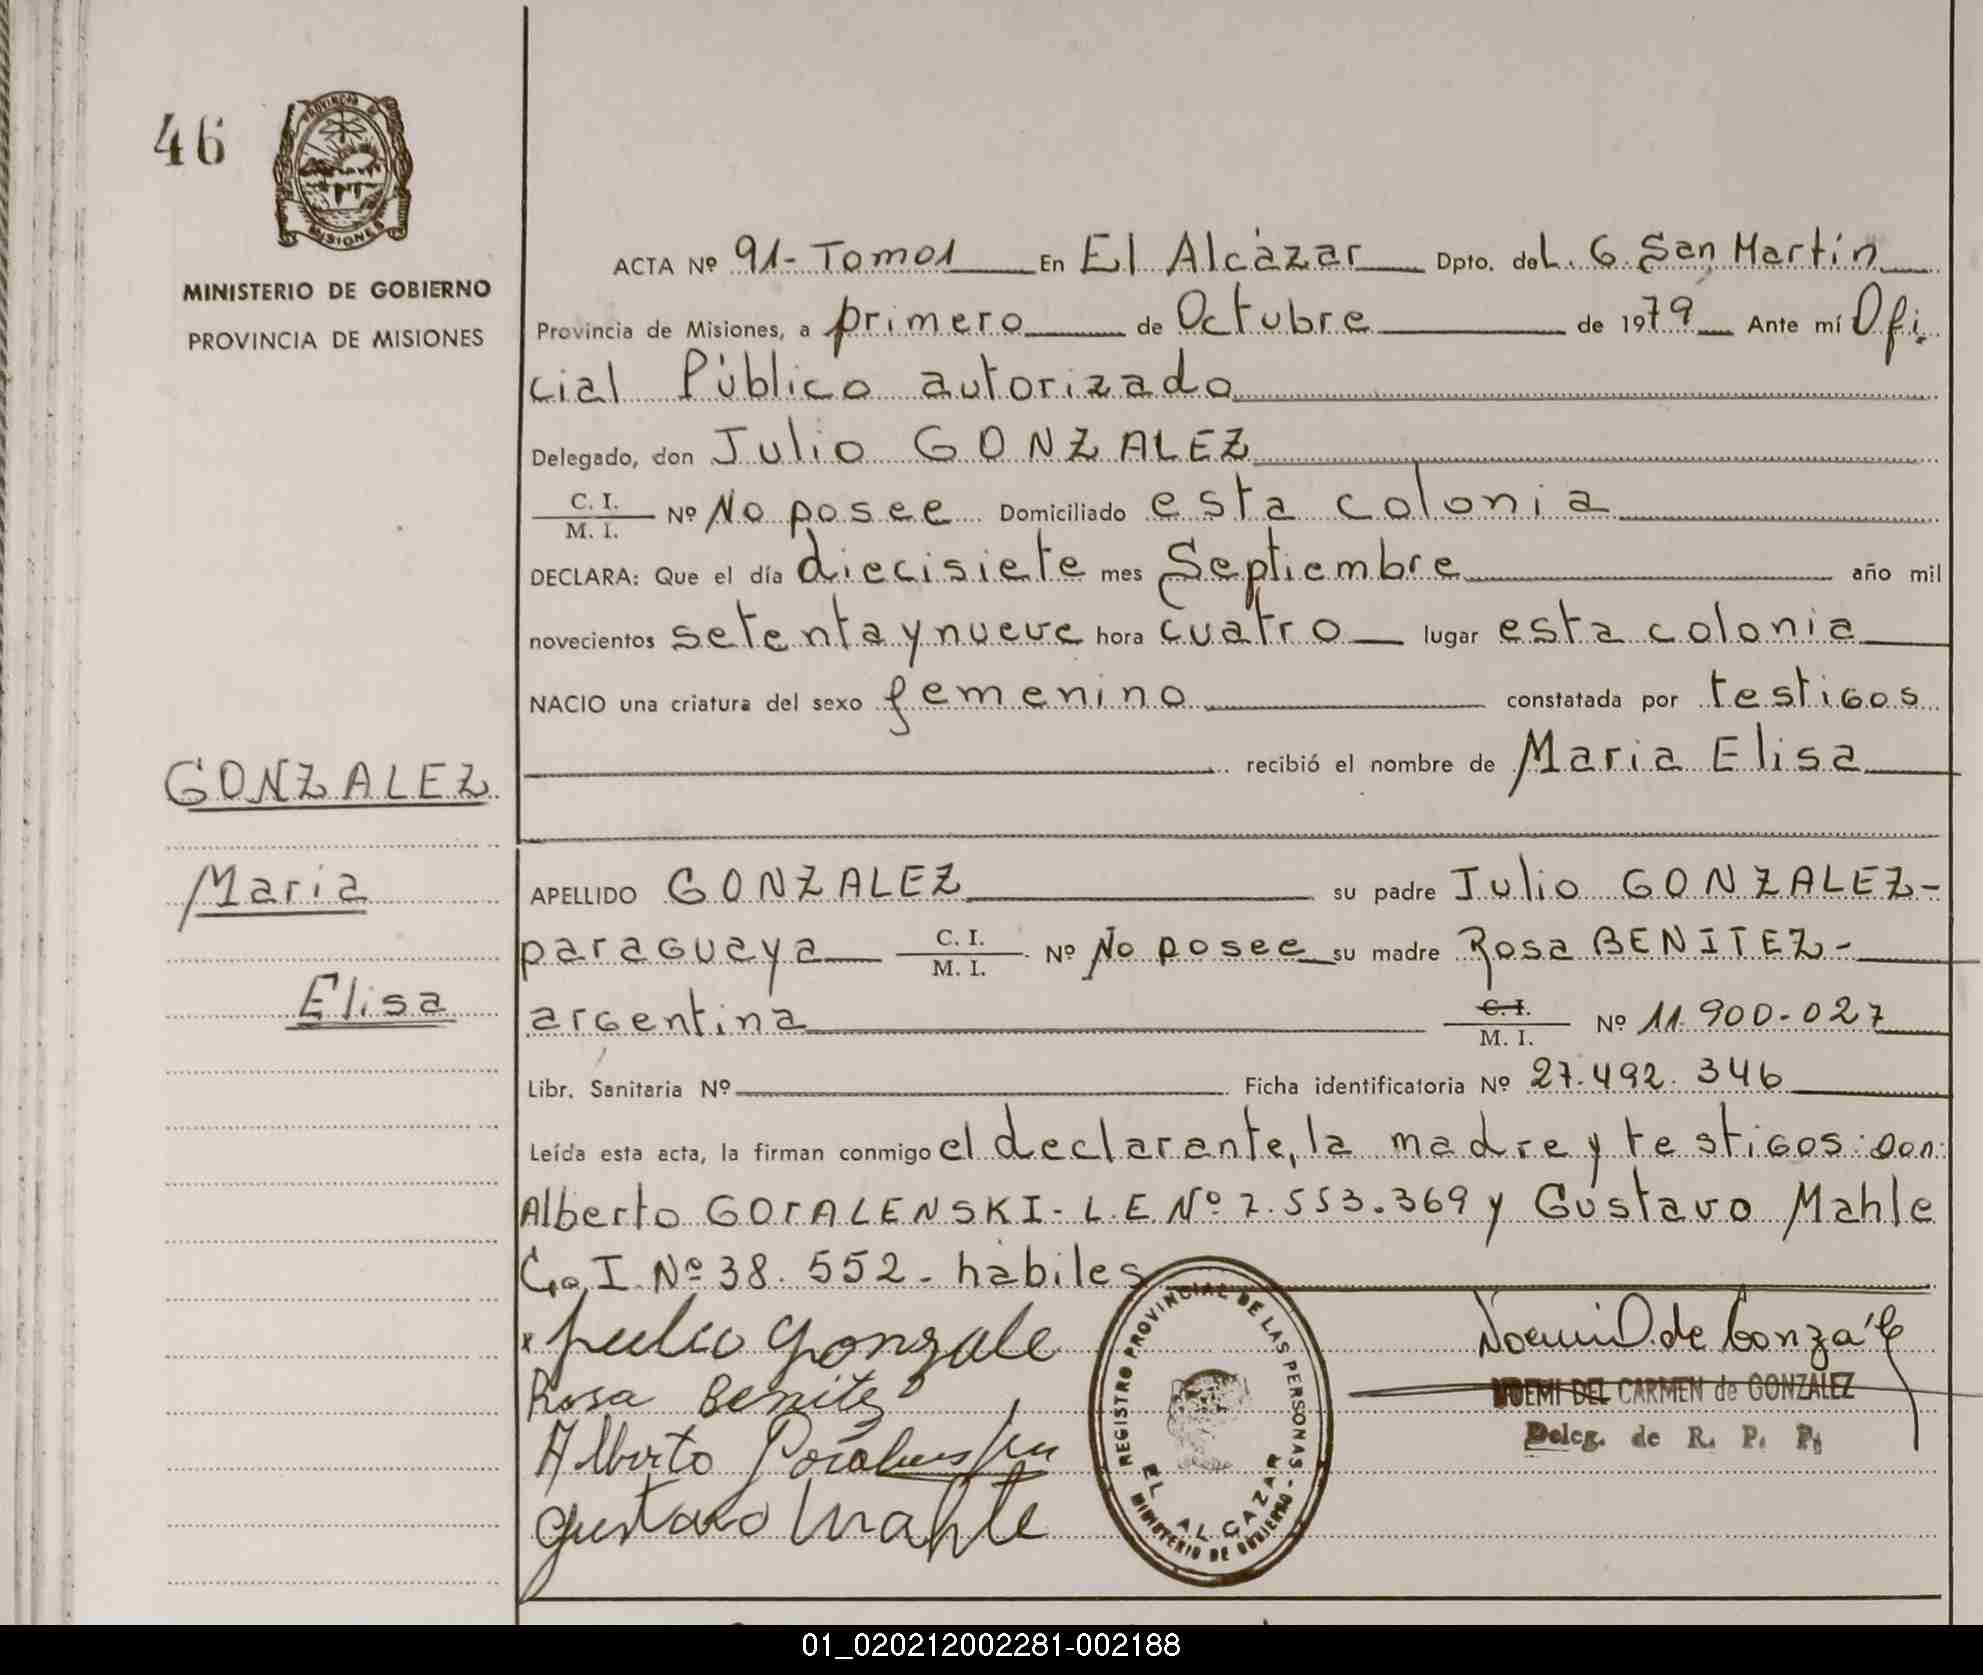 46
PROVINCIA DE
MISIONES
MINISTERIO DE GOBIERNO
PROVINCIA DE MISIONES
ACTA Nº 91-Tomo1 En El Alcázar Dpto. deL. G. San Martín
Provincia de Misiones, a primero de Octubre de 1979 Ante mí Ofi
cial Público autorizado
Delegado, don Julio GONZALEZ
C. I.
M. I. Nº No posee Domiciliado esta colonia
DECLARA: Que el día diecisiete mes Septiembre año mil
novecientos setenta y nueve hora cuatro lugar esta colonia
NACIO una criatura del sexo femenino constatada por testigos
recibió el nombre de Maria Elisa
GONZALEZ
Maria
Elisa
APELLIDO GONZALEZ su padre Julio GONZALEZ-
paraguaya C. I.
M. I. Nº No posee su madre Rosa BENITEZ-
argentina C. I.
M. I. Nº 11.900-027
Libr. Sanitaria Nº Ficha identificatoria Nº 27.492.346
Leída esta acta, la firman conmigo el declarante, la madre y testigos: Don:
Alberto GORALENSKI- L.E. Nº 7.553.369 y Gustavo Mahle
C. I. Nº 38.552- hábiles
x Julio Gonzale
Rosa Benitez
Alberto
Gustavo Mahle
REGISTRO PROVINCIAL DE LAS PERSONAS -
MINISTERIO DE GOBIERNO -
EL ALCAZAR
Noemi D. de Gonzá
NOEMI DEL CARMEN de GONZALEZ
Deleg. de R. P. P.
01_020212002281-002188